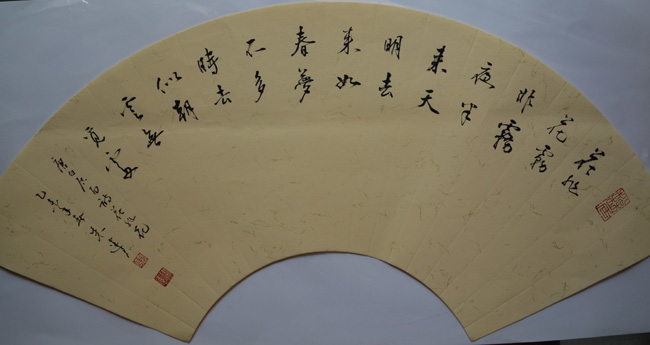 花非
花霧
非霧
夜半
来天
明去
来如
春夢
不多
時去
似朝
雲無
覓處
唐白居易花非花